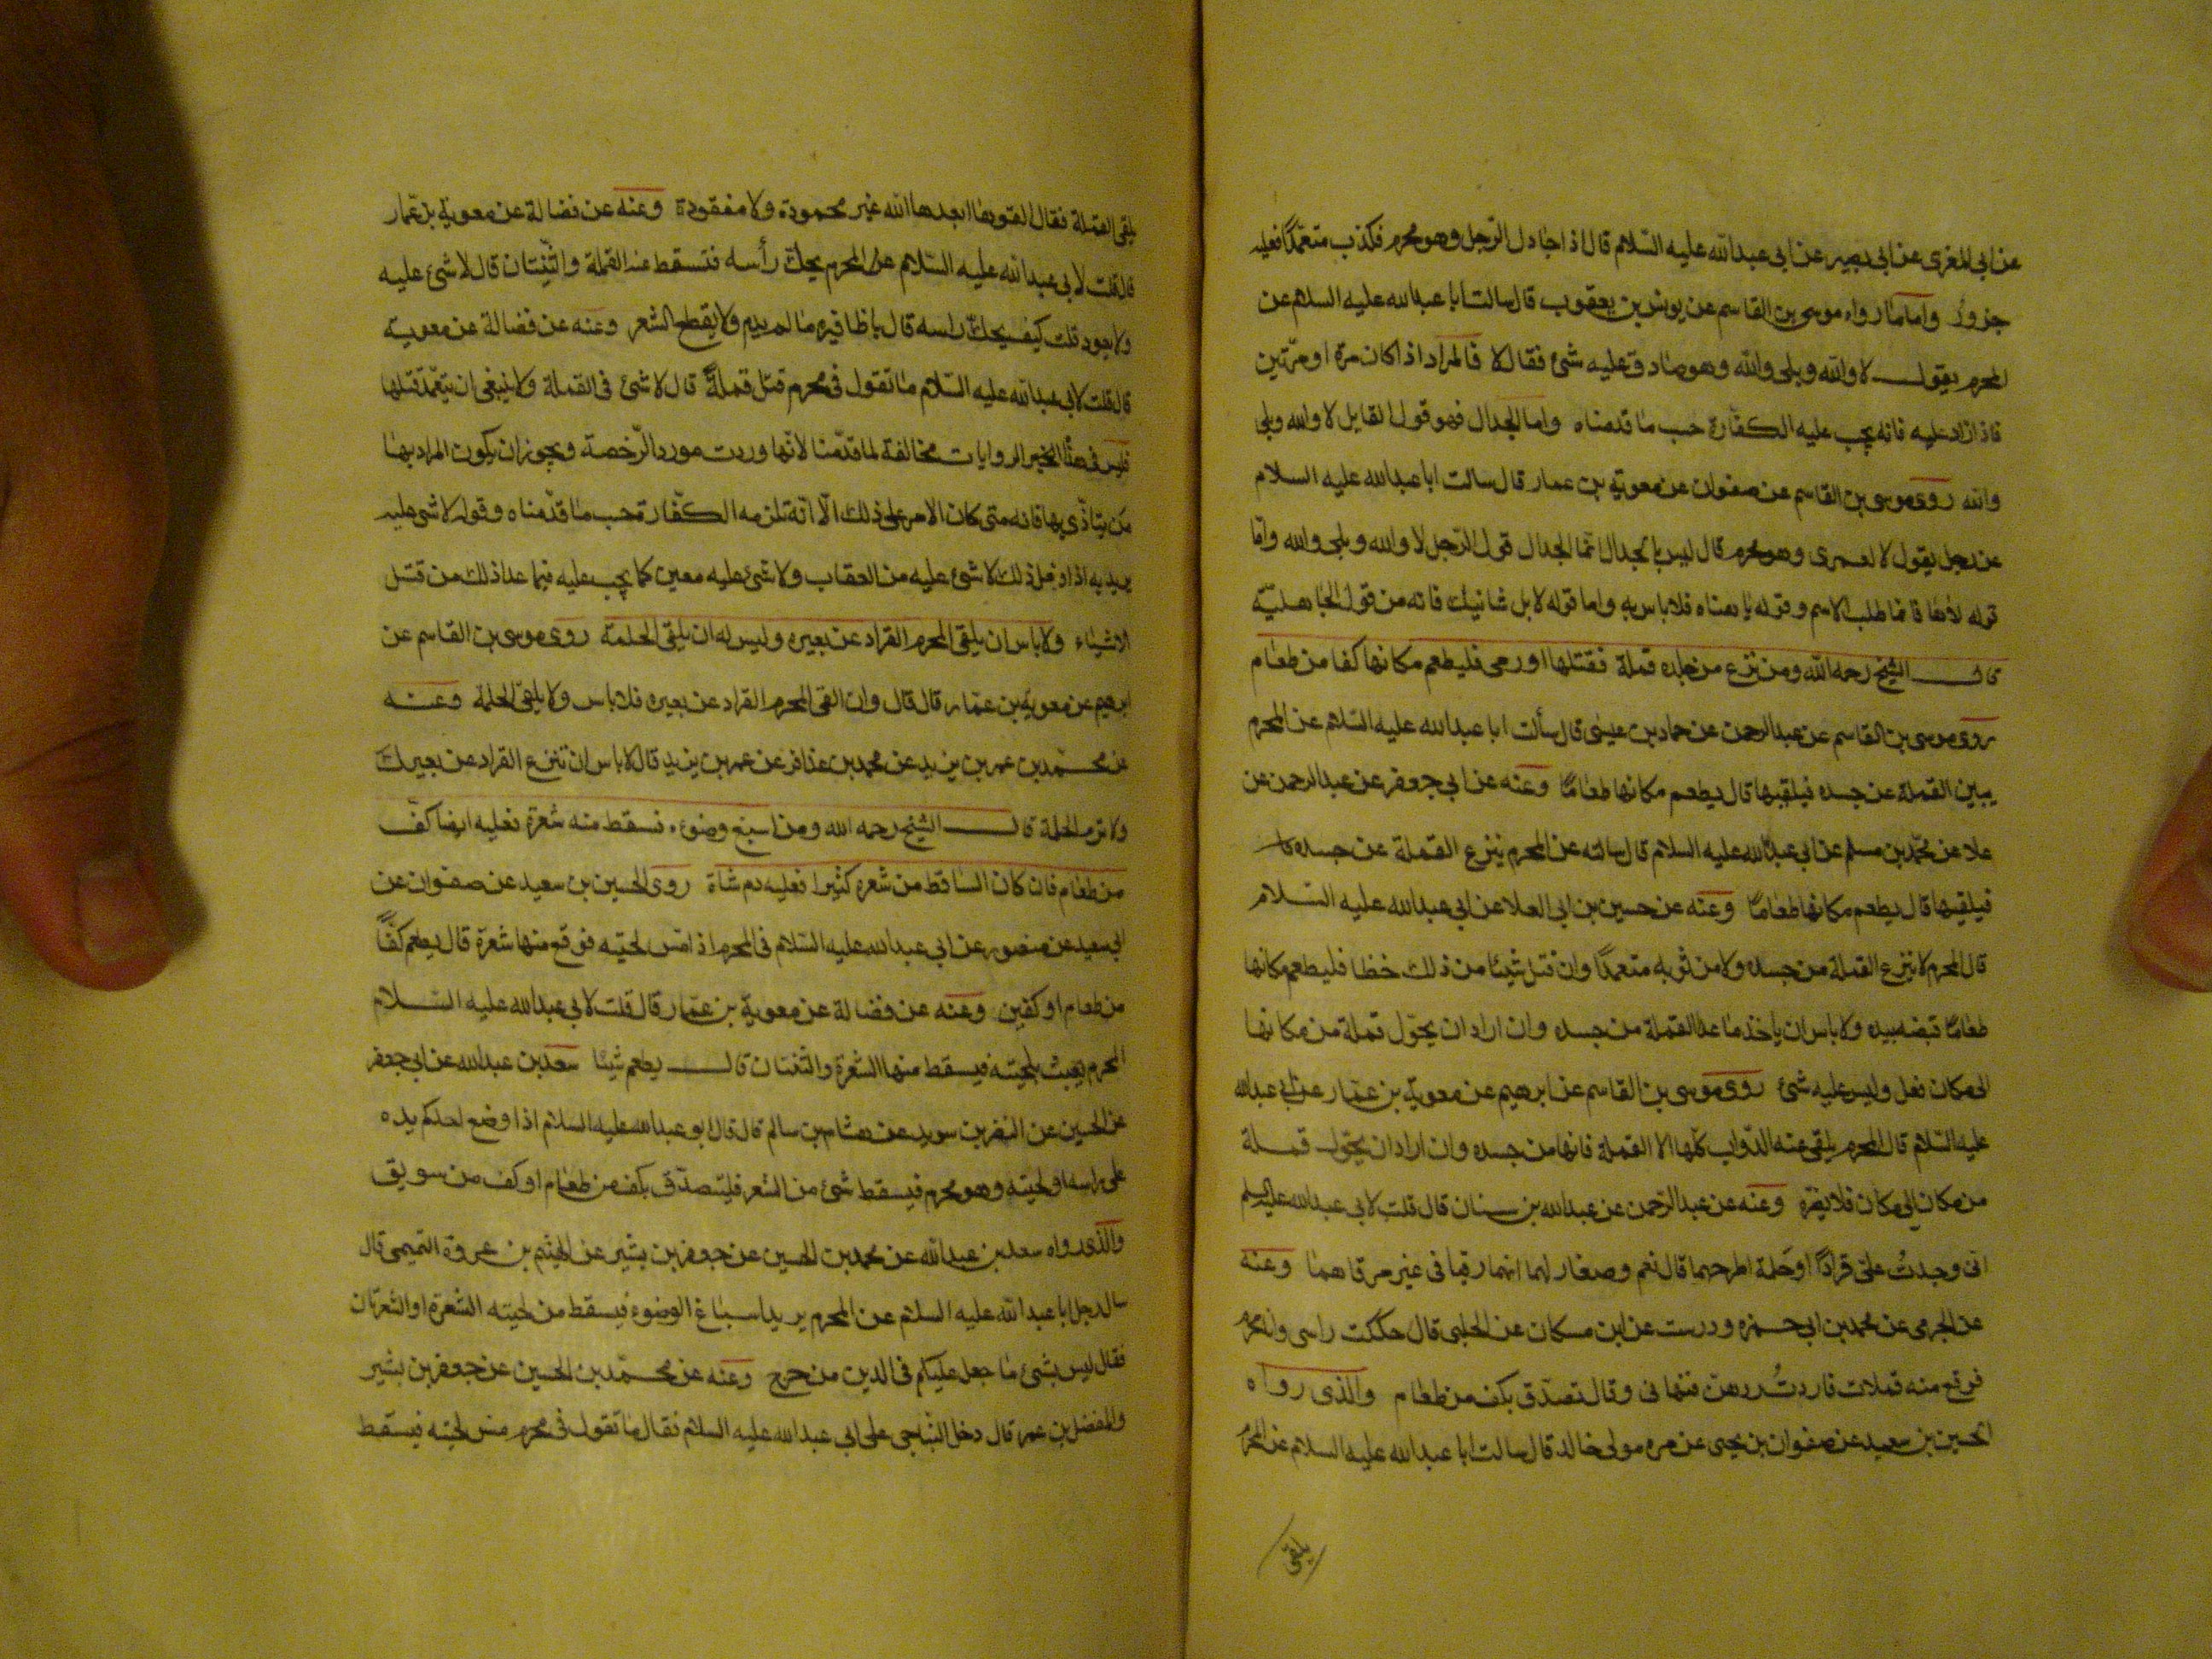 عن ابى المغرى عن ابى بصير عن ابى عبدالله عليه السّلام قال اذا جادل الرّجل وهو محرم فكذب متعمّدًا فعليه
جزورٌ واما ما رواه موسى بن القاسم عن يونس بن يعقوب قال سالت ابا عبدالله عليه السلام عن
المحرم يقول لا والله وبلى والله وهو صادق عليه شئ فقال لا فالمراد اذا كان مرة او مرّتين
فاذا زاد عليه فانه يجب عليه الكفّارة حسب ما قدمناه واما الجدال فهو قول القايل لا والله وبلى
والله روى موسى بن القاسم عن صفوان عن معوية بن عمار قال سالت ابا عبدالله عليه السلام
عن رجل يقول لا لعمرى وهو محرم قال ليس بالجدال انّما الجدال قول الرّجل لا والله وبلى والله وامّا
قوله لاها فانما طلب الاسم وقوله يا هناه فلا باس به واما قوله لا بل شانيك فانه من قول الجاهليّة
قال الشيخ رحمه الله ومن نزع من جلده قملة فقتلها او رمى فليطعم مكانها كفا من طعام
روى موسى بن القاسم عن عبدالرحمن عن حماد بن عيسى قال سألت ابا عبدالله عليه السّلام عن المحرم
يبين القملة عن جسده فيلقيها قال يطعم مكانها طعامًا وعنه عن ابى جعفر عن عبدالرحمن عن
علا عن محمّد بن مسلم عن ابى عبدالله عليه السلام قال سالته عن المحرم ينزع القملة عن جسده
فيلقيها قال يطعم مكانها طعامًا وعنه عن حسين بن ابى العلا عن ابى عبدالله عليه السّلام
قال المحرم لا ينزع القملة من جسده ولا من ثوبه متعمدًا وان قتل شيئا من ذلك خطا فليطعم مكانها
طعامًا قبضه بيده ولا باس ان ياخذ ما عدا القملة من جسده وان اراد ان يحوّل قملة من مكانها
الى مكان فعل وليس عليه شئ روى موسى بن القاسم عن ابرهيم عن معوية بن عمّار عن ابى عبدالله
عليه السّلام قال المحرم يلقى عنه الدّواب كلّها الا القملة فانها من جسده وان اراد ان يحوّل قملة
من مكان الى مكان فلا يضره وعنه عن عبدالرّحمن عن عبدالله بن سنان قال قلت لابى عبدالله عليه السلم
انى وجدتُ علىّ قرادًا او حَلمة اطرحهما قال نعم وصغار لهما انهما رقيا فى غير مرقاهما وعنه
عن الجرمى عن محمد بن ابى حمزه ودرست عن ابن مسكان عن الحلبى قال حككت راسى وانا محرم
فوقع منه قملات فاردتُ ردهنّ فنهانى وقال تصدّق بكف من طعام والذى رواه
الحسين بن سعيد عن صفوان بن يحيى عن مره مولى خالد قال سالت ابا عبدالله عليه السلام عن المحرم
يلقى
يلقى القملة فقال القوها ابعدها الله غير محمودة ولا مفقودة وعنه عن فضالة عن معوية بن عمّار
قال قلت لابى عبدالله عليه السّلام عن المحرم يحكّ رأسه فتسقط عنه القملة والثّنتان قال لا شئ عليه
ولا يعود قلت كيف يحكّ راسه قال باظافيره ما لم يدم ولا يقطع الشعر وعنه عن فضالة عن معوية
قال قلت لابى عبدالله عليه السّلام ما تقول فى محرم قتل قملةً قال لا شئ فى القملة ولا ينبغى ان يتعمّد قتلها
فليس فى هذا الخبر الروايات مخالفة لما قدّمنا لانّها وردت مورد الرّخصة ويجوز ان يكون المراد بها
من يتاذّى بها فانه متى كان الامر على ذلك الّا انّه تلزمه الكفّارة حسب ما قدّمناه وقوله لا شئ عليه
يريد به اذا فعل ذلك لا شئ عليه من العقاب ولا شئ عليه معين كما يجب عليه فيما عدا ذلك من قتل
الاشياء ولا باس ان يلقى المحرم القراد عن بعيره وليس له ان يلقى الحلمة روى موسى بن القاسم عن
ابرهيم عن معوية بن عمّار قال قال وان القى المحرم القراد عن بعيره فلا باس ولا يلقى الحلمة وعنه
عن محمّد بن عمر بن يزيد عن محمد بن عذافر عن عمر بن يزيد قال لا باس ان تنزع القراد عن بعيرك
ولا ترم الحلمة قال الشيخ رحمه الله ومن اسبغ وضوءه فسقط منه شعرة فعليه ايضا كفّ
من طعام فان كان السّاقط من شعره كثيرا فعليه دم شاة روى الحسين بن سعيد عن صفوان عن
ابى سعيد عن منصور عن ابى عبدالله عليه السّلام فى المحرم اذا مسّ لحيته فوقع منها شعرة قال يطعم كفًّا
من طعام او كفين وعنه عن فضالة عن معوية بن عمّار قال قلت لابى عبدالله عليه السّلام
المحرم يعبث بلحيته فيسقط منها الشعرة والثنتان قال يطعم شيئا سعد بن عبدالله عن ابى جعفر
عن الحسين عن النضر بن سويد عن هشام بن سالم قال قال ابو عبدالله عليه السلام اذا وضع احدكم يده
على راسه او لحيته وهو محرم فيسقط شئ من الشعر فليتصدّق بكف من طعام او كف من سويق
والّذى رواه سعد بن عبدالله عن محمد بن الحسين عن جعفر بن بشير عن الهيثم بن عروة التميمى قال
سال رجل ابا عبدالله عليه السلام عن المحرم يريد اسباغ الوضوء فيسقط من لحيته الشعرة او الشعرتان
فقال ليس بشئ ما جعل عليكم فى الدين من حرج وعنه عن محمّد بن الحسين عن جعفر بن بشير
والمفضل بن عمر قال دخل النّباجى على ابى عبدالله عليه السلام فقال ما تقول فى محرم مس لحيته فيسقط